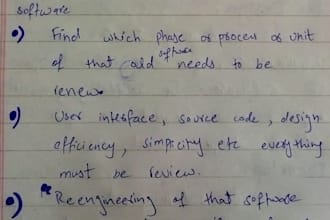 software
•) Find which phase or process or unit
of that old software needs to be
renew.
•) User interface, source code, design
efficiency, simplicity etc everything
must be review.
•) Reengineering of that software